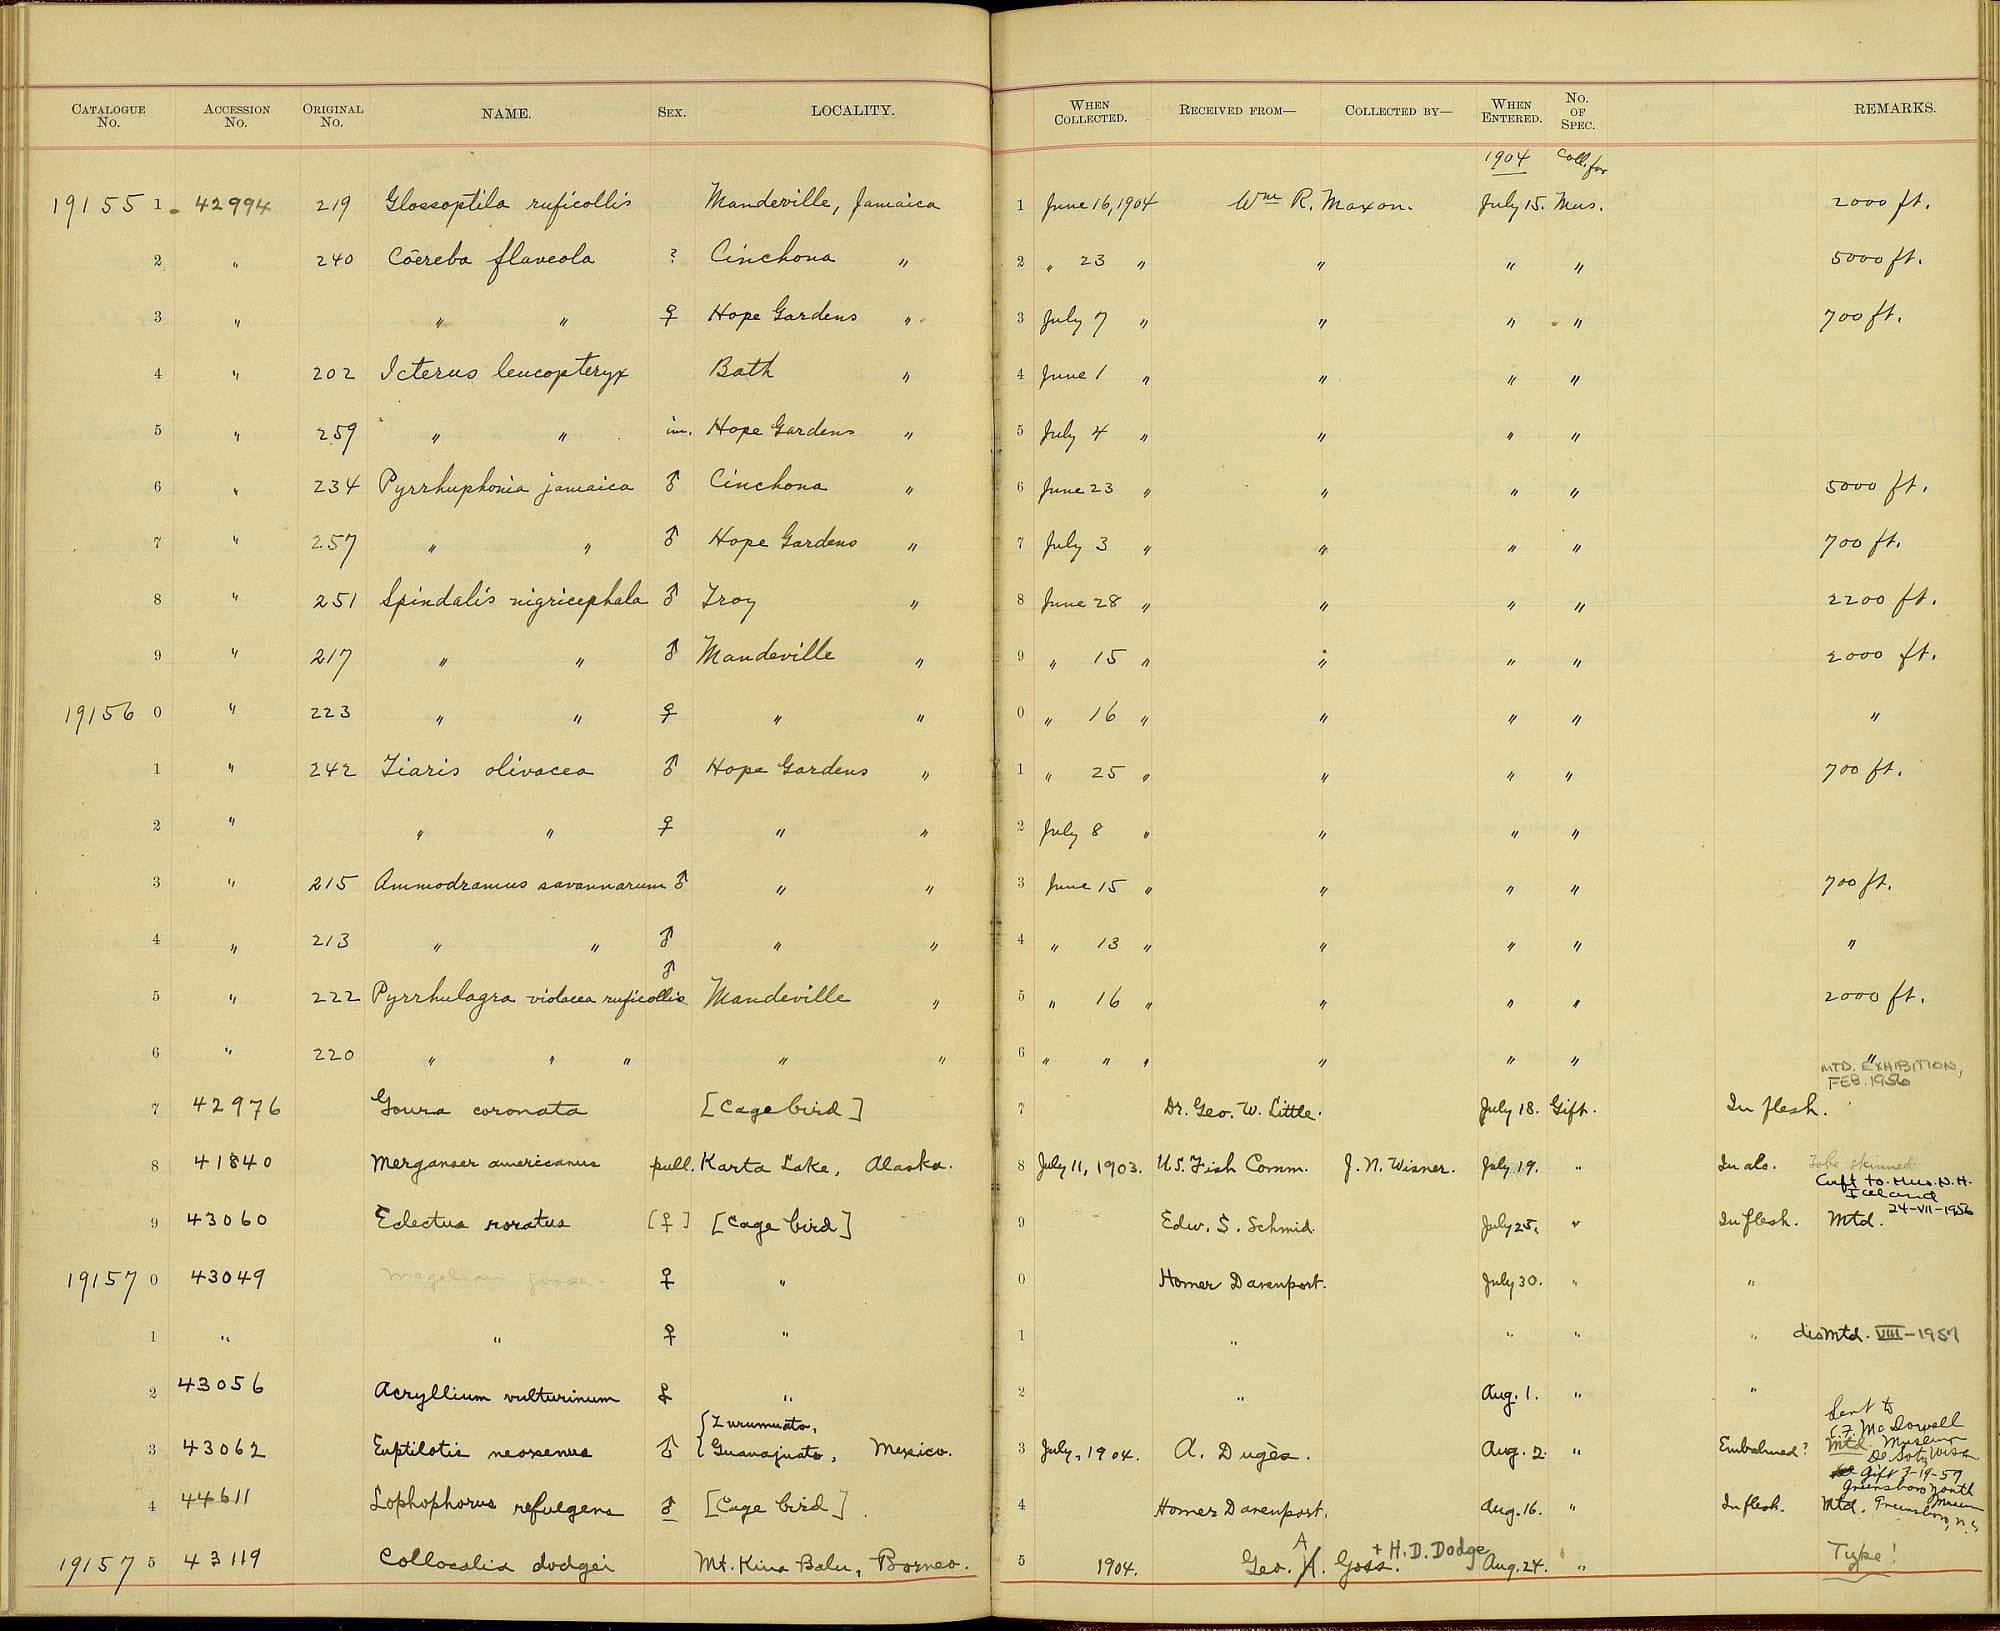 CATALOGUE No. ACCESSION No. ORIGINAL No. NAME. SEX. LOCALITY. WHEN COLLECTED. RECEIVED FROM— COLLECTED BY— WHEN ENTERED. No. OF SPEC. REMARKS.
1904 Coll. for
19155 1 42994 219 Glossoptila ruficollis Mandeville, Jamaica 1 June 16, 1904 Wm R. Maxon. July 15. Mus. 2000 ft.
2 " 240 Cöereba flaveola ? Cinchona " 2 " 23 " " " " 5000 ft.
3 " " " ♀ Hope Gardens " 3 July 7 " " " " 700 ft.
4 " 202 Icterus leucopteryx Bath " 4 June 1 " " " "
5 " 259 " " im. Hope Gardens " 5 July 4 " " " "
6 " 234 Pyrrhuphonia jamaica ♂ Cinchona " 6 June 23 " " " " 5000 ft.
7 " 257 " " ♂ Hope Gardens " 7 July 3 " " " " 700 ft.
8 " 251 Spindalis nigricephala ♂ Troy " 8 June 28 " " " " 2200 ft.
9 " 217 " " ♂ Mandeville " 9 " 15 " " " " 2000 ft.
19156 0 " 223 " " ♀ " " 0 " 16 " " " " "
1 " 242 Tiaris olivacea ♂ Hope Gardens " 1 " 25 " " " " 700 ft.
2 " " " ♀ " " 2 July 8 " " " "
3 " 215 Ammodramus savannarum ♂ " " 3 June 15 " " " " 700 ft.
4 " 213 " " ♂ " " 4 " 13 " " " " "
5 " 222 Pyrrhulagra violacea ruficollis ♂ Mandeville " 5 " 16 " " " " 2000 ft.
6 " 220 " " " " " 6 " " " " " " "
MTD. EXHIBITION,
FEB. 1956
7 42976 Goura coronata [Cage bird] 7 Dr. Geo. W. Little. July 18. Gift. In flesh.
8 41840 Merganser americanus pull. Karta Lake, Alaska. 8 July 11, 1903. U.S. Fish Comm. J. N. Wisner. July 19. " In alc. To be skinned
Gift to Mus. N.H.
Iceland
24-VII-1956
9 43060 Eclectus roratus [♀] [Cage bird] 9 Edw. S. Schmid. July 25. " In flesh. Mtd.
19157 0 43049 Magellan goose ♀ " 0 Homer Davenport. July 30. " "
1 " " ♀ " 1 " " " " dismtd. VIII-1957
2 43056 Acryllium vulturinum ♀ " 2 " Aug. 1. " "
Sent to
McDowell
3 43062 Euptilotis neoxenus ♂ {Zurumuato, Guanajuato, Mexico. 3 July, 1904. A. Dugès. Aug. 2. " Embalmed? Mtd. Museum
De Soto, Wisc
Gift 3-19-57
Greensboro Youth
Museum
4 44611 Lophophorus refulgens ♂ [Cage bird] 4 Homer Davenport. Aug. 16. " In flesh. Mtd. Greensboro, N.C.
19157 5 43119 Collocalia dodgei Mt. Kina Balu, Borneo. 5 1904. Geo. A. Goss. + H. D. Dodge Aug. 24. " Type!